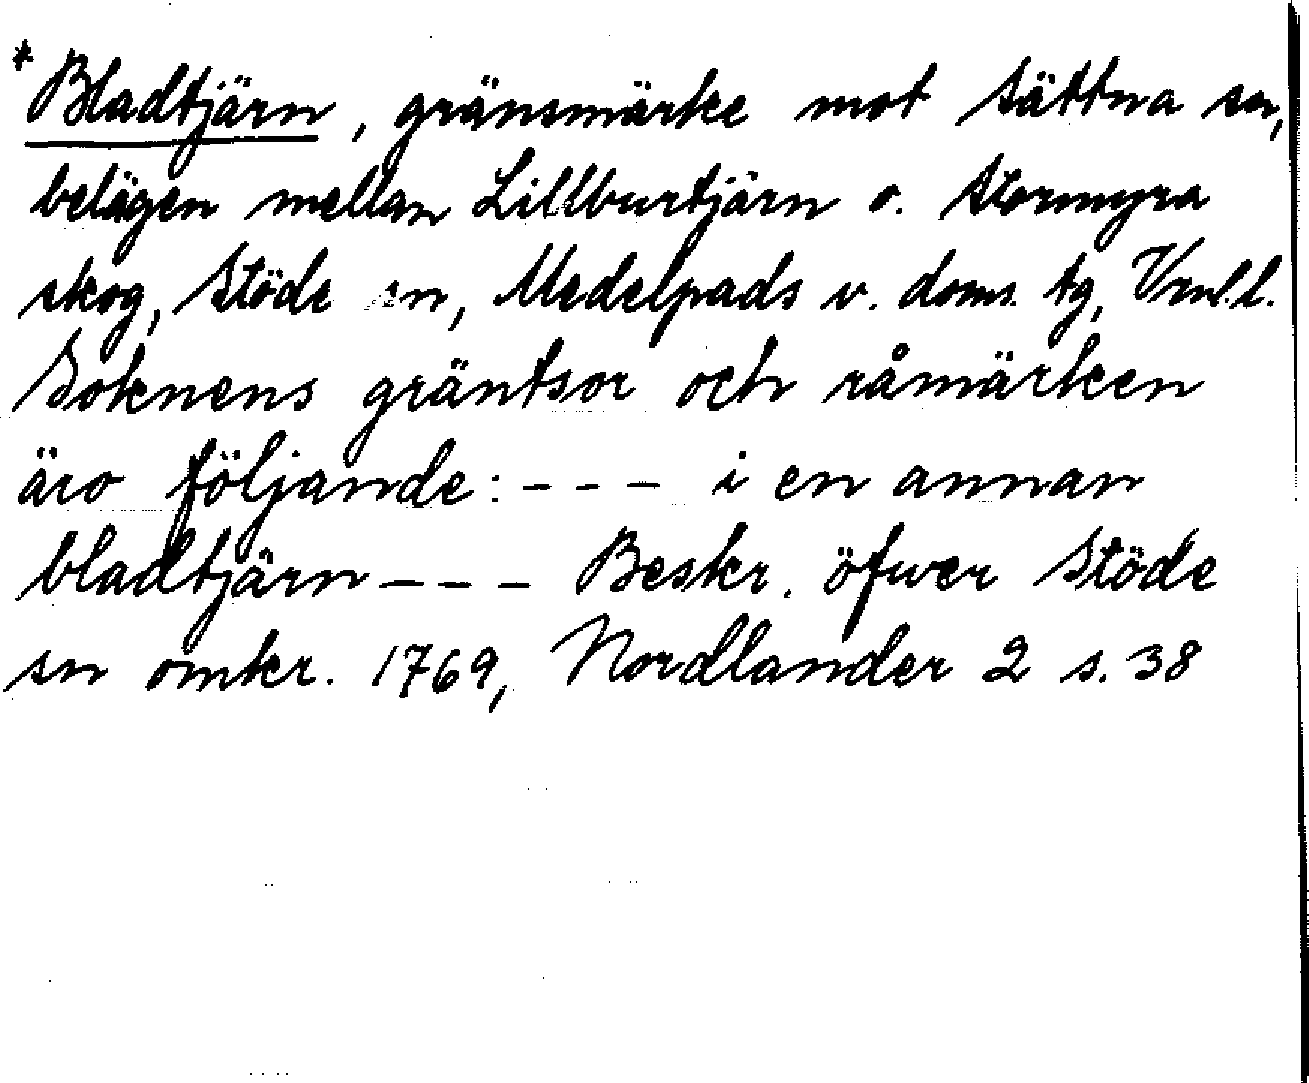 *Bladtjärn, gränsmärke mot Sättna sn,
belägen mellan Lillburtjärn o. Stormyra
skog, Stöde sn, Medelpads v. doms. tg, Vnl. l.
Soknens gräntsor och råmärken
äro följande: - - - i en annan
bladtjärn - - - Beskr. öfwer Stöde
sn omkr. 1769, Nordlander 2 s. 38